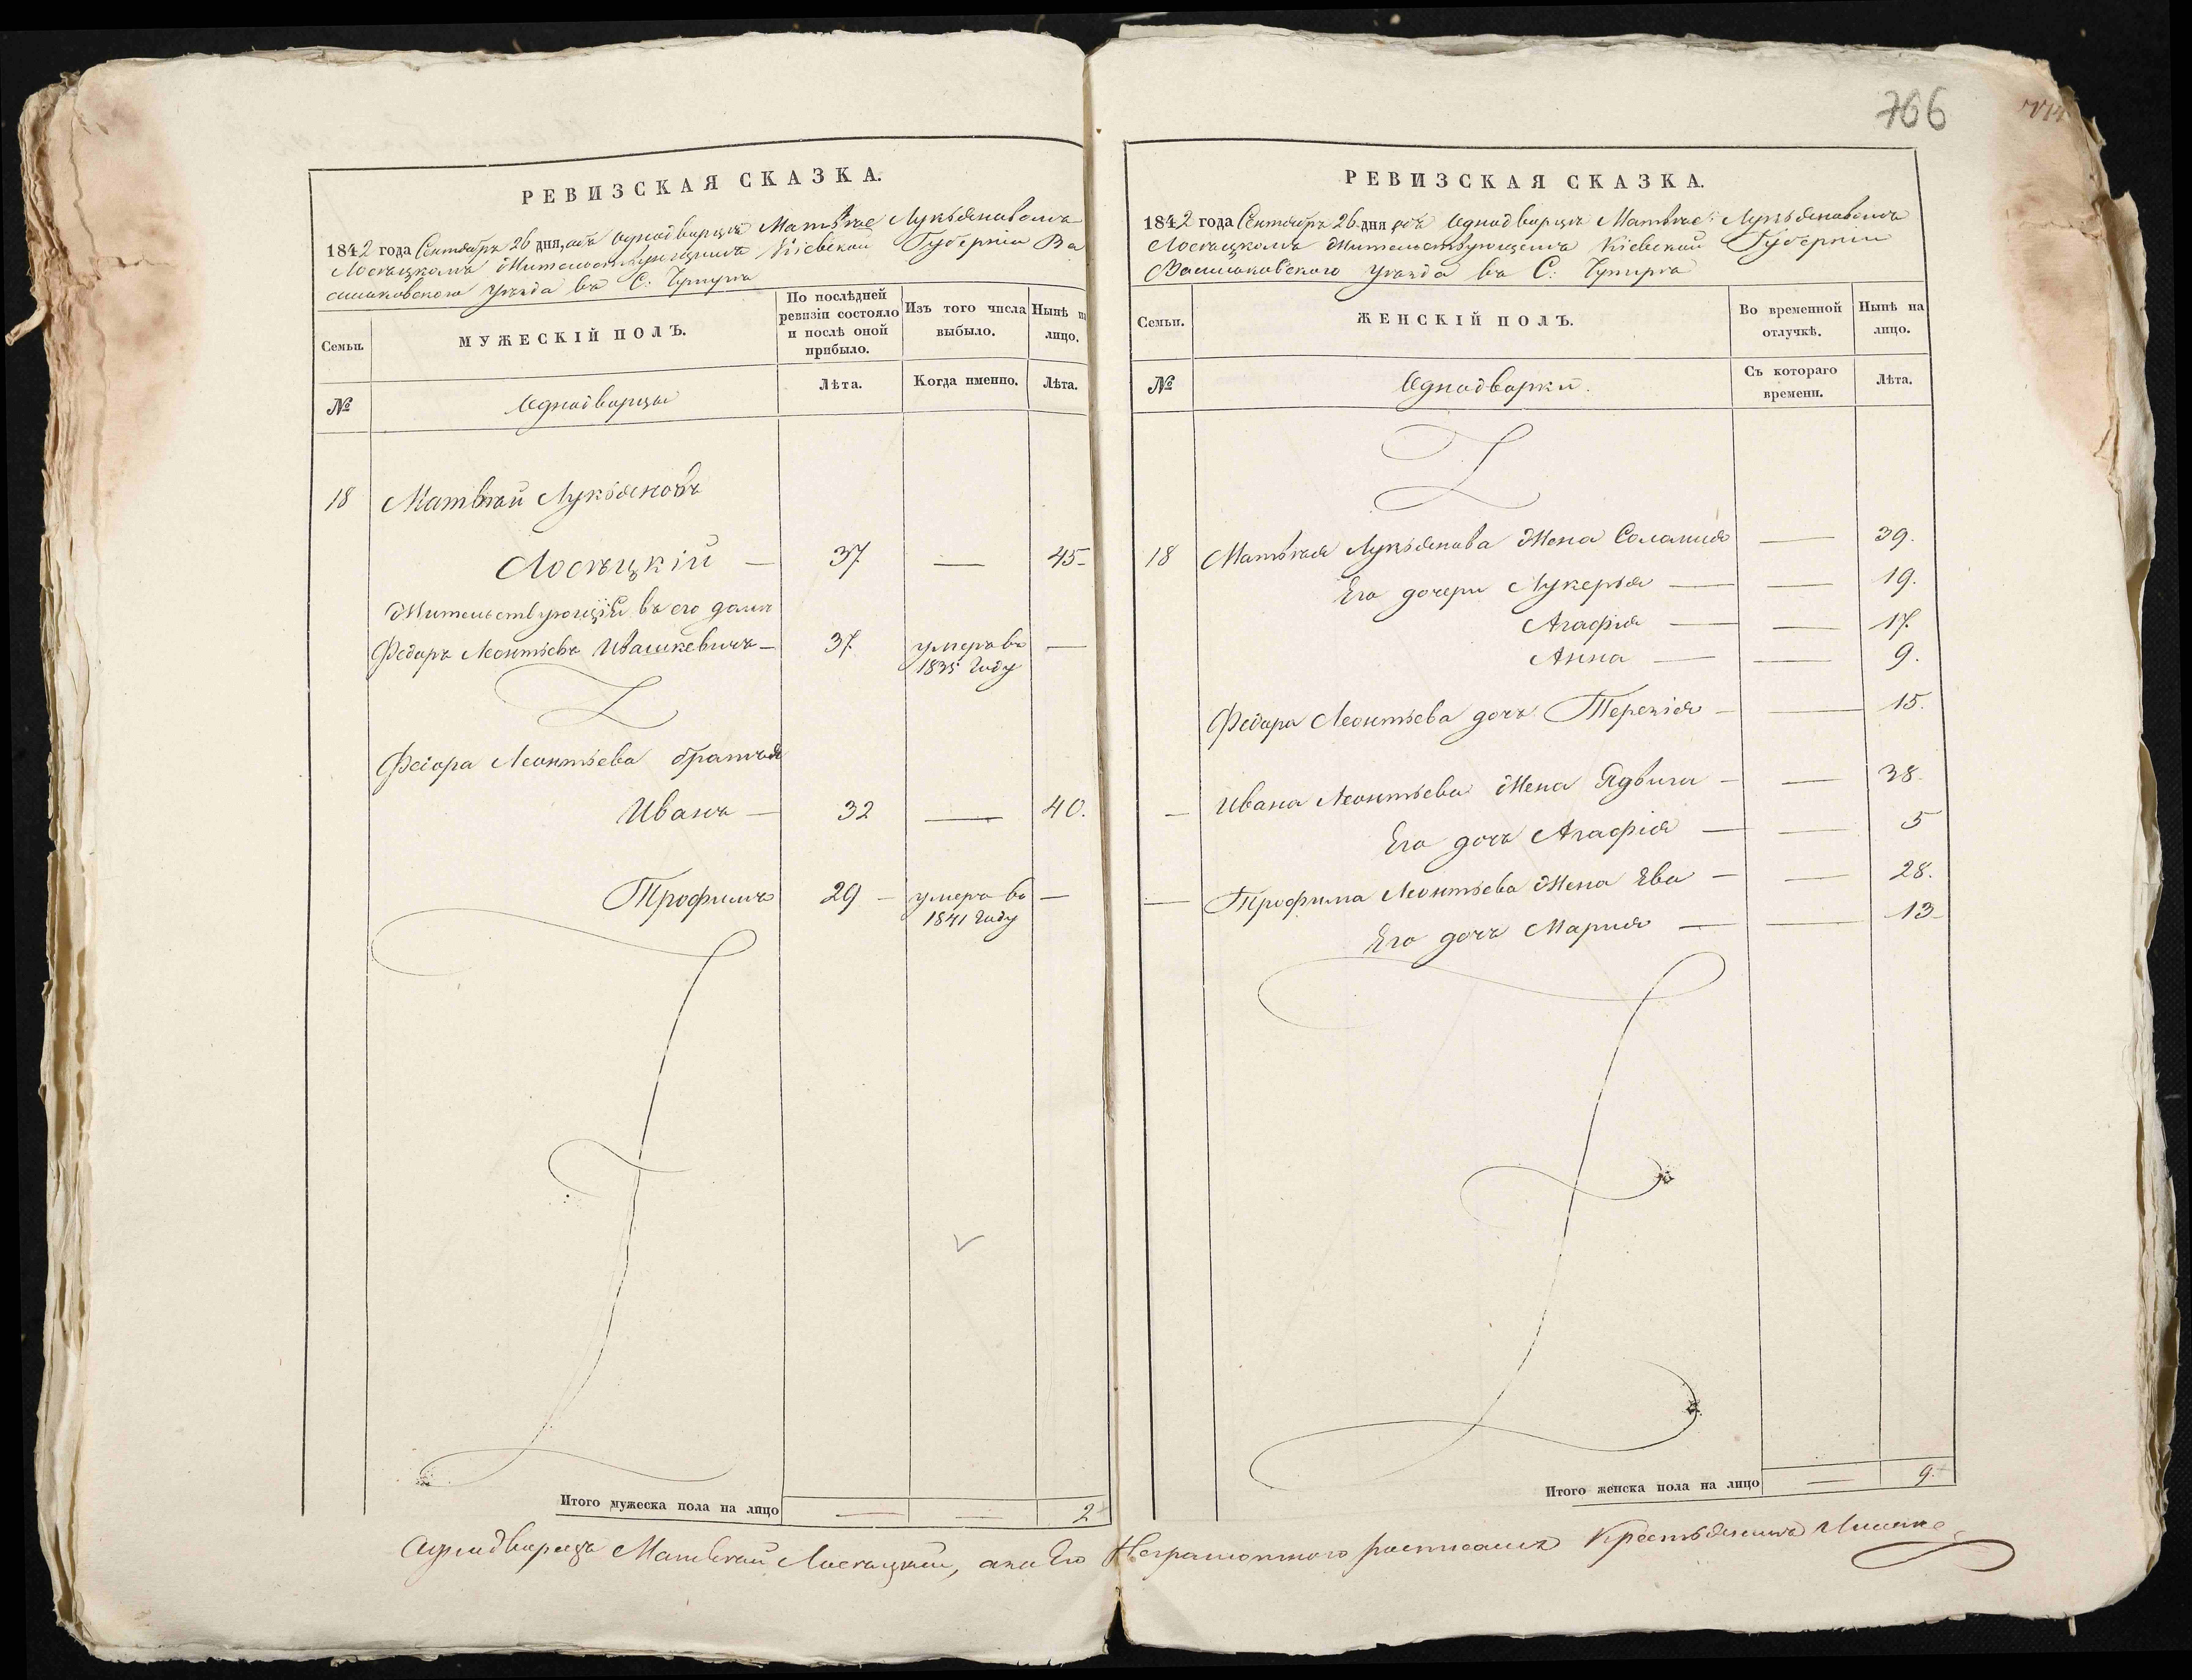 766
РЕВИЗСКАЯ СКАЗКА.
1842 года Сентября 26 дня, объ однодворцѣ Матвѣе Лукьяновомъ
Лосѣцкомъ жительствующемъ Кіевской Губерніи Ва
сильковского уѣзда въ С:
Семьи.
МУЖЕСКІЙ ПОЛЪ.
По послѣдней ревизіи состояло и послѣ оной прибыло.
Изъ того числа выбыло.
Нынѣ на лицо.
№
Однодворцы
Лѣта.
Когда именно.
Лѣта.
18 Матвѣй Лукьяновъ
Лосѣцкій — 37. — 45
Жительствующій въ его домѣ
Федоръ Леонтьевъ Ивашкевичъ — 37. умеръ въ —
1835 Году
Федора Леонтьева братья
Иванъ — 32 — 40.
Трофимъ 29 — умеръ въ —
1841 Году
Итого мужеска пола на лицо — — 2
РЕВИЗСКАЯ СКАЗКА.
1842 года Сентября 26 дня объ однодворцѣ Матвѣе Лукьяновомъ
Лосѣцкомъ жительствующемъ Кіевской Губерніи
Васильковского уѣзда въ С:
Семьи.
ЖЕНСКІЙ ПОЛЪ.
Во временной отлучкѣ.
Нынѣ на лицо.
№
Однодворки.
Съ котораго времени.
Лѣта.
18 Матвѣя Лукьянова жена Соломия — 39.
Его дочери Лукерья — — 19.
Агафия — — 17.
Анна — — 9.
Федора Леонтьева дочь — — 15.
— Ивана Леонтьева жена Ядвига — — 38.
Его дочь Агафія — — 5
— Трофима Леонтьева жена Ева — — 28.
Его дочь Мария — — 13
Итого женска пола на лицо — 9.
Однодворецъ Матвѣй Лосѣцкій, а за Его Неграмотного росписался Крестьянинъ